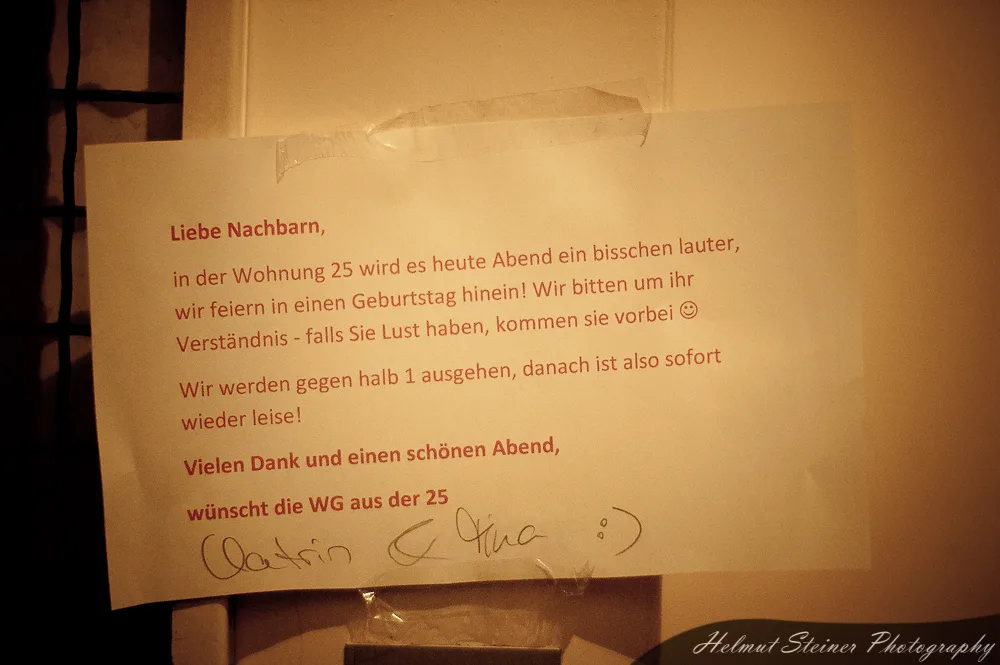 Liebe Nachbarn,
in der Wohnung 25 wird es heute Abend ein bisschen lauter,
wir feiern in einen Geburtstag hinein! Wir bitten um ihr
Verständnis - falls Sie Lust haben, kommen sie vorbei ☺
Wir werden gegen halb 1 ausgehen, danach ist also sofort
wieder leise!
Vielen Dank und einen schönen Abend,
wünscht die WG aus der 25
Catrin & Tina :)
Helmut Steiner Photography